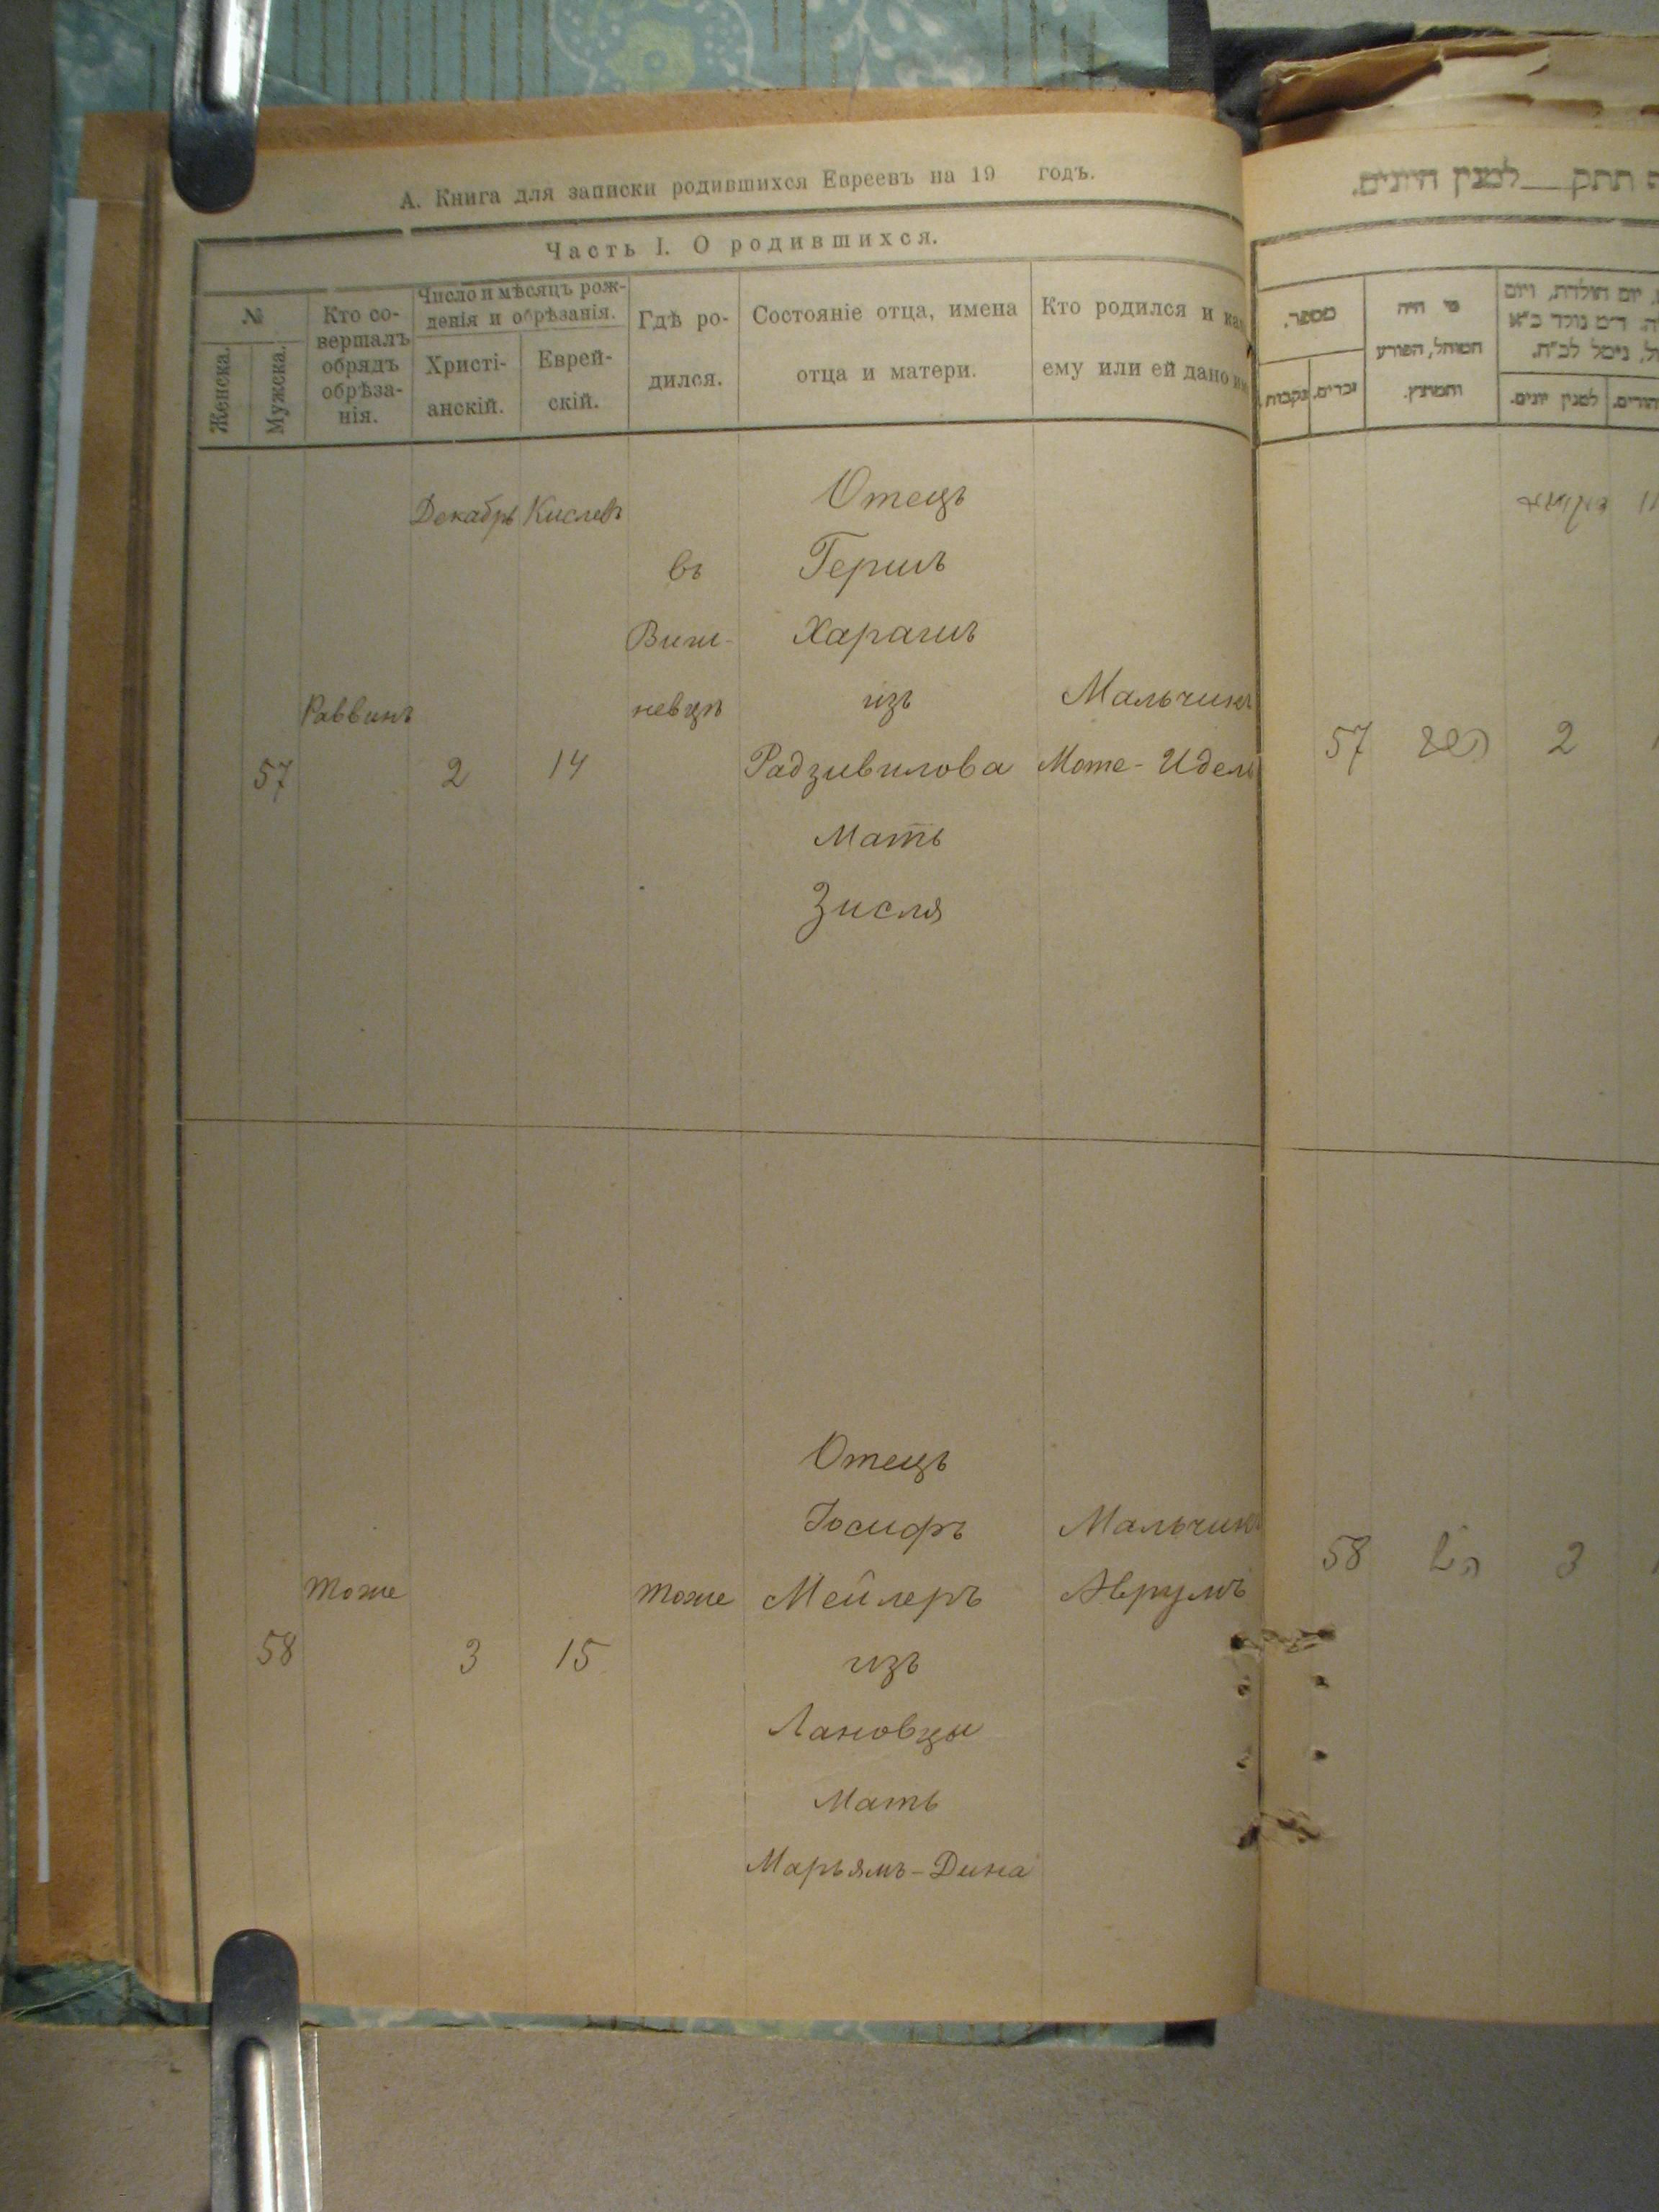 А. Книга для записки родившихся Евреевъ на 19 годъ.
Часть I. О родившихся.
№
Женска.
Мужска.
Кто со-
вершалъ
обрядъ
обрѣза-
нія.
Число и мѣсяцъ рож-
денія и обрѣзанія.
Христі-
анскій.
Еврей-
скій.
Гдѣ ро-
дился.
Состояніе отца, имена
отца и матери.
Кто родился и как
ему или ей дано им
57
Раввинъ
Декабрь
2
Кислевъ
14
въ
Виш-
невцѣ
Отецъ
Гершъ
Харашъ
изъ
Радзивилова
Мать
Зисля
Мальчикъ
Моте-Идель
58
тоже
3
15
тоже
Отецъ
Іосифъ
Мейлеръ
изъ
Лановцы
Мать
Марьямъ-Дина
Мальчикъ
Аврумъ
תתק למנין היונים.
מספר.
זכרים.
נקבות.
מי היה
המוהל, הפורע
והמוצץ.
יום הולדת, ויום
למנין יונים.
57
2
58
3